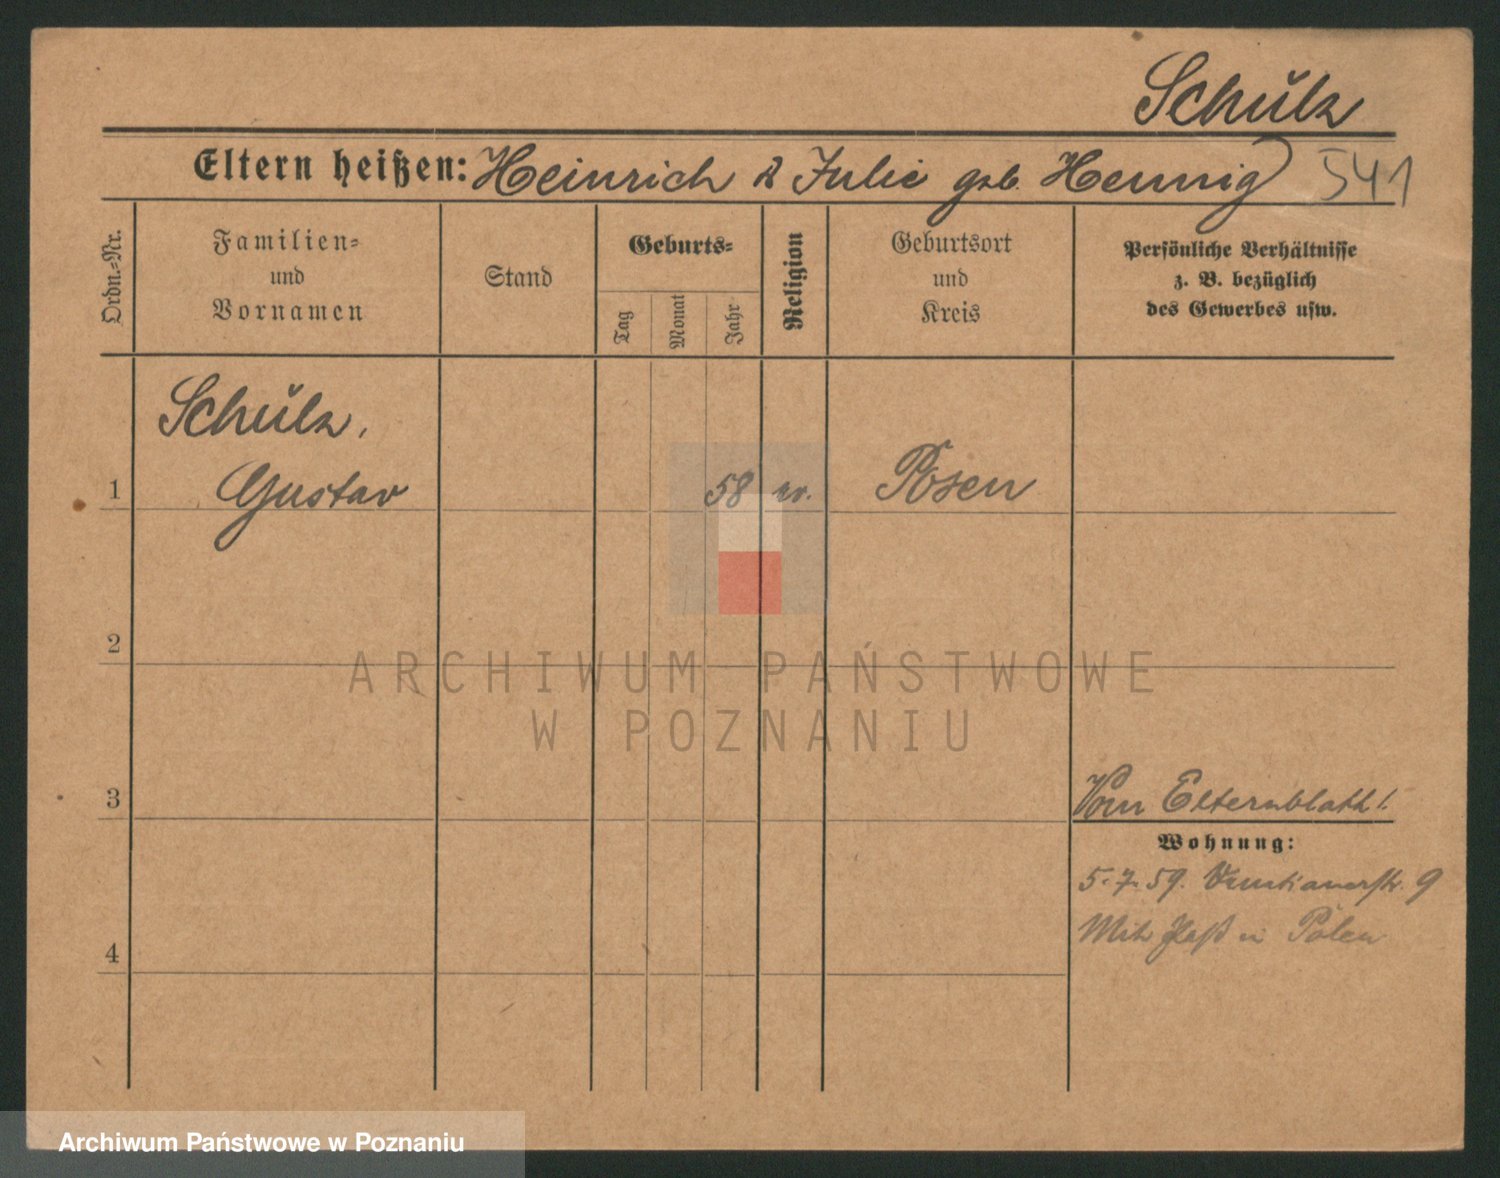 Schulz
Eltern heißen: Heinrich & Julie geb. Hennig 541
Ordn.-Nr.
Familien-
und
Vornamen
Stand
Geburts-
Tag
Monat
Jahr
Religion
Geburtsort
und
Kreis
Persönliche Verhältnisse
z. B. bezüglich
des Gewerbes usw.
Schulz,
1 Gustav 58 ev. Posen
2
ARCHIWUM PAŃSTWOWE
W POZNANIU
3 Vom Elternblatt!
Wohnung:
5.7.59. 9
Mit Paß in Polen
4
Archiwum Państwowe w Poznaniu